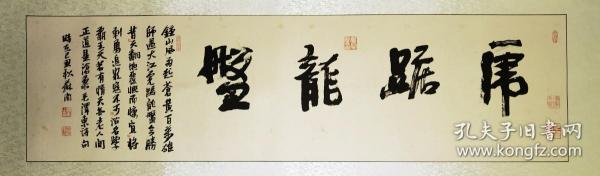 虎踞龍盤
鍾山風雨起蒼黃百萬雄
師過大江虎踞龍盤今勝
昔天翻地覆慨而慷宜將
剩勇追窮寇不可沽名學
霸王天若有情天亦老人間
正道是滄桑毛澤東詩句
時在己丑秋
孔夫子旧书网
www.kongfz.com